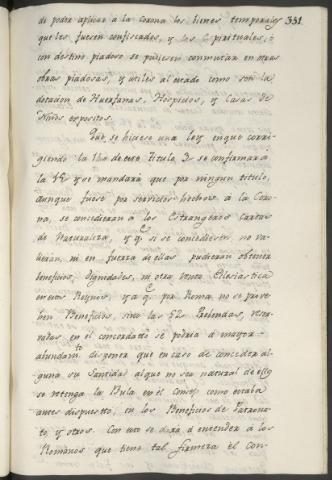 de poder aplicar á la corona los bienes temporales 331.
que les fuesen confiscados, y los Espirituales, ó
con destino piadoso se pudiesen conmutar en otras
obras piadosas, y utiles al estado como son la
dotacion de Huerfanas, Hospicios, y Casas de
Niños expositos.
Que se hiciese una ley en que corri-
giendo la 1ª de este Titulo, 3 se confirmara
la y se mandará que por ningun titulo,
aunque fuese por servicios hechos á la Coro-
na, se concedieran á los Estrangeros Cartas
de Naturaleza, y qᵉ si se concediesen no va-
lieran, ni en fuerza de ellas pudieran obtener
beneficios, Dignidades, ni otra renta Eclesiastica
en estos Reynos, y a qᵉ por Roma no se provè-
hen Beneficios, sino las 52 Prebendas, reser-
vadas en el concordato se podria á mayor
abundamᵗᵒ disponer que en caso de conceder al-
guna su Santidad al que no sea natural de ellos
se retenga la Bula en el Consejo como estaba
antes dispuesto, en los Beneficios de Patrona-
to, y otros. Con esto se dará á entender á los
Romanos que tiene tal firmeza el Con-